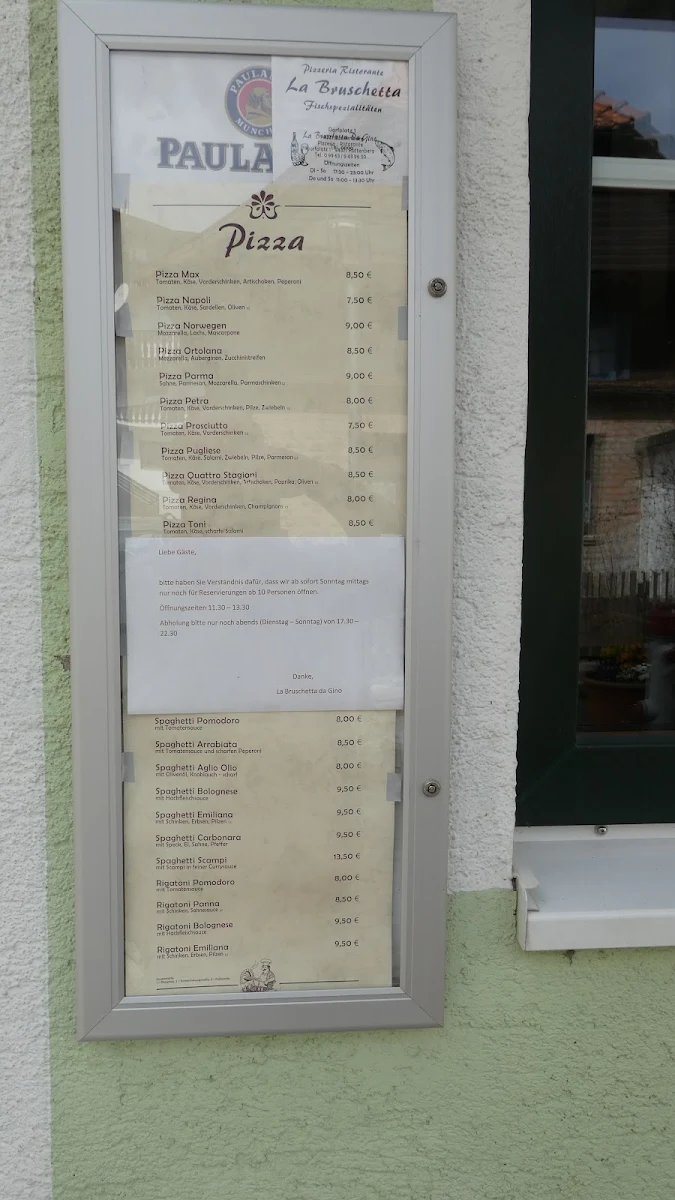 PAULA
MÜNCH
PAULA
Pizzeria Ristorante
La Bruschetta
Fischspezialitäten
La Bruschetta Da Gino
Pizzeria - Ristorante
Öffnungszeiten
Di - So 17:30 - 23:00 Uhr
Do und So 11:00 - 13:30 Uhr
Pizza
Pizza Max 8,50 €
Tomaten, Käse, Vorderschinken, Artischoken, Peperoni
Pizza Napoli 7,50 €
Tomaten, Käse, Sardellen, Oliven
Pizza Norwegen 9,00 €
Mozzarella, Lachs, Mascarpone
Pizza Ortolana 8,50 €
Mozzarella, Auberginen, Zucchinistreifen
Pizza Parma 9,00 €
Sahne, Parmesan, Mozzarella, Parmaschinken
Pizza Petra 8,00 €
Tomaten, Käse, Vorderschinken, Pilze, Zwiebeln
Pizza Prosciutto 7,50 €
Tomaten, Käse, Vorderschinken
Pizza Pugliese 8,50 €
Tomaten, Käse, Salami, Zwiebeln, Pilze, Parmesan
Pizza Quattro Stagioni 8,50 €
Tomaten, Käse, Vorderschinken, Artischoken, Paprika, Oliven
Pizza Regina 8,00 €
Tomaten, Käse, Vorderschinken, Champignons
Pizza Toni 8,50 €
Tomaten, Käse, scharfe Salami
Liebe Gäste,
bitte haben Sie Verständnis dafür, dass wir ab sofort Sonntag mittags
nur noch für Reservierungen ab 10 Personen öffnen.
Öffnungszeiten 11.30 – 13.30
Abholung bitte nur noch abends (Dienstag – Sonntag) von 17.30 –
22.30
Danke,
La Bruschetta da Gino
Spaghetti Pomodoro 8,00 €
mit Tomatensauce
Spaghetti Arrabiata 8,50 €
mit Tomatensauce und scharfen Peperoni
Spaghetti Aglio Olio 8,00 €
mit Olivenöl, Knoblauch - scharf
Spaghetti Bolognese 9,50 €
mit Hackfleischsauce
Spaghetti Emiliana 9,50 €
mit Schinken, Erbsen, Pilzen
Spaghetti Carbonara 9,50 €
mit Speck, Ei, Sahne, Pfeffer
Spaghetti Scampi 13,50 €
mit Scampi in feiner Currysauce
Rigatoni Pomodoro 8,00 €
mit Tomatensauce
Rigatoni Panna 8,50 €
mit Schinken, Sahnesauce
Rigatoni Bolognese 9,50 €
mit Hackfleischsauce
Rigatoni Emiliana 9,50 €
mit Schinken, Erbsen, Pilzen